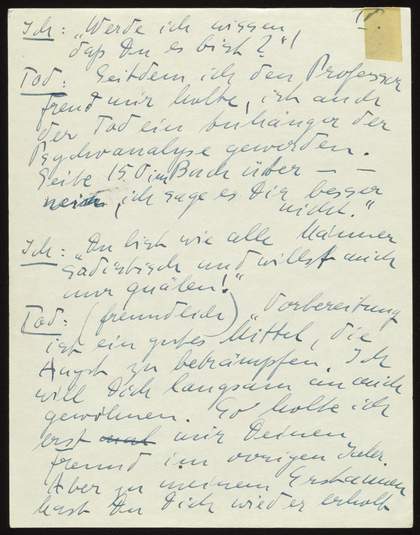 Ich: „Werde ich wissen IV.
daß Du es bist?"
Tod: Seitdem ich den Professor
Freud mir holte, ist auch
der Tod ein Anhänger der
Psychoanalyse geworden.
Seite 150 im Buch über – –
nein, ich sage es Dir besser
nicht."
Ich: „Du bist wie alle Männer
sadistisch und willst mich
nur quälen!"
Tod: (freundlich) „Vorbereitung
ist ein gutes Mittel, die
Angst zu bekämpfen. Ich
will Dich langsam an mich
gewöhnen. So holte ich
erst mir Deinen
Freund im vorigen Jahr.
Aber zu meinem Erstaunen
hast Du Dich wieder erholt